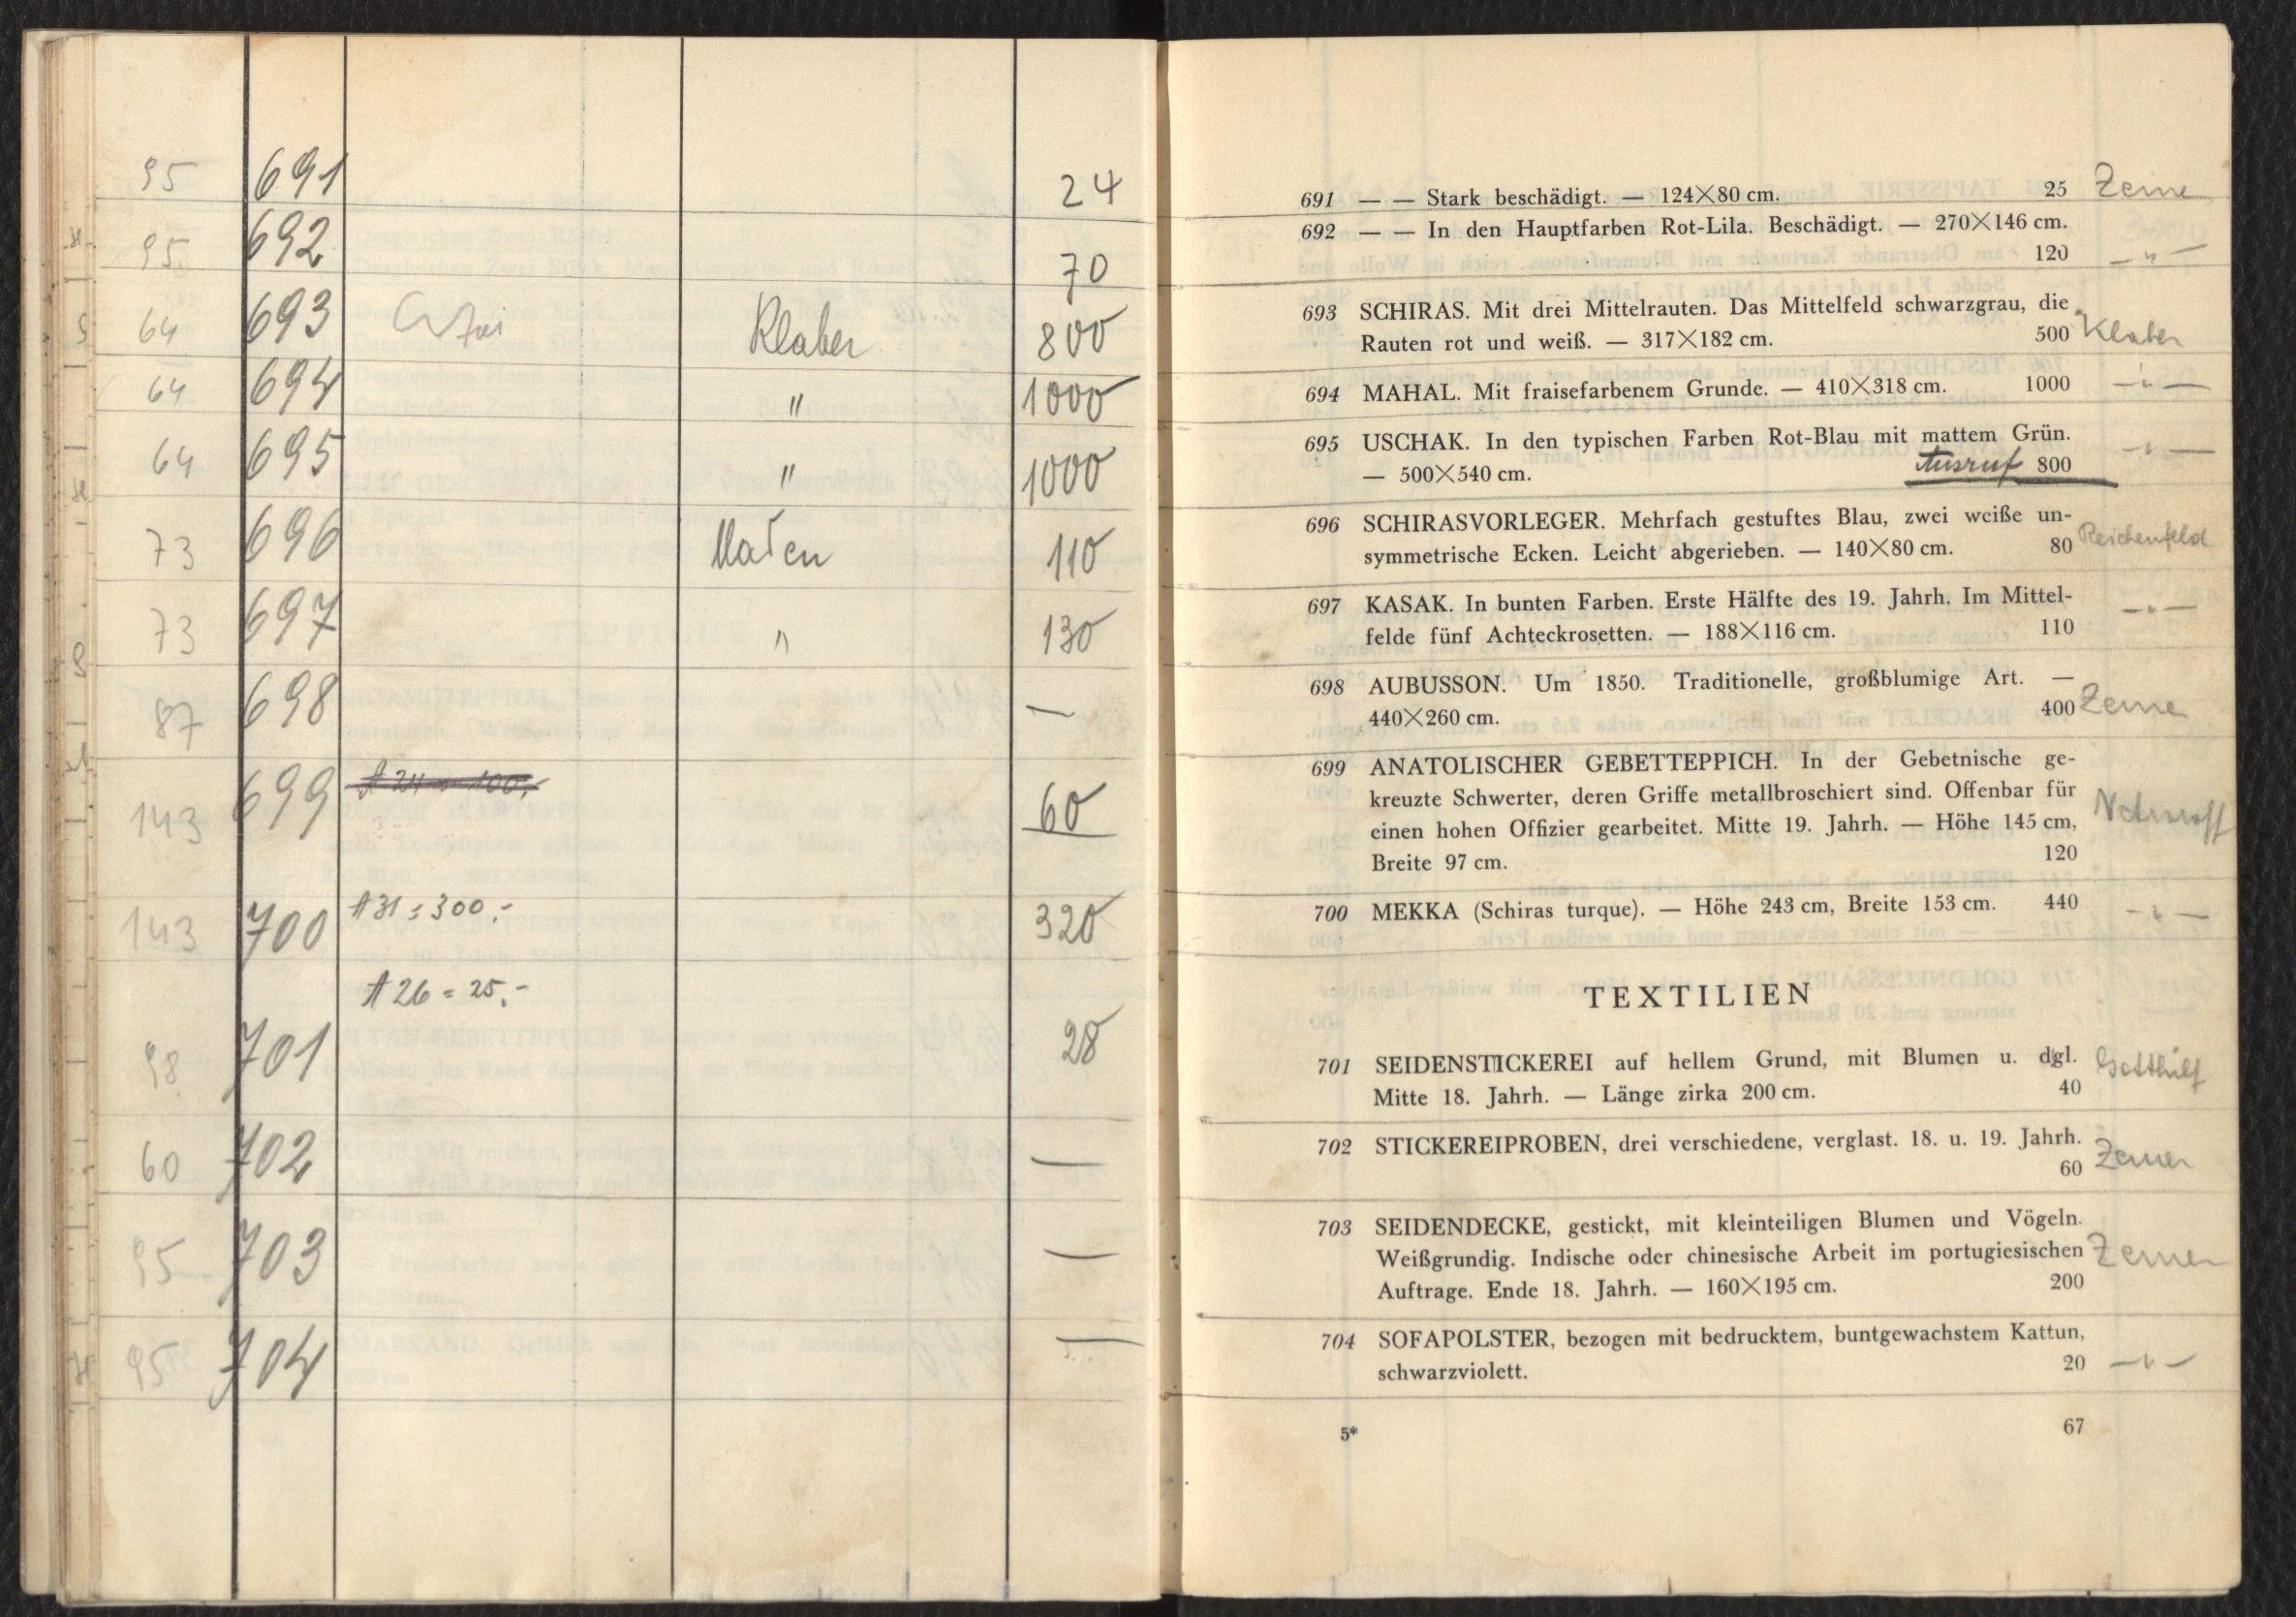 95 691 24
95 692 70
64 693 Klaber 800
64 694 " 1000
64 695 " 1000
73 696 110
73 697 " 130
87 698 —
143 699 A 24 = 100.- 60
143 700 A 31 = 300.- 320
A 26 = 25.-
98 701 28
60 702 —
95 703 —
95 704 —
691 — — Stark beschädigt. — 124×80 cm. 25 Zerne
692 — — In den Hauptfarben Rot-Lila. Beschädigt. — 270×146 cm.
120 — " —
693 SCHIRAS. Mit drei Mittelrauten. Das Mittelfeld schwarzgrau, die
Rauten rot und weiß. — 317×182 cm. 500 Klaber
694 MAHAL. Mit fraisefarbenem Grunde. — 410×318 cm. 1000 — " —
695 USCHAK. In den typischen Farben Rot-Blau mit mattem Grün.
— 500×540 cm. Ausruf 800 — " —
696 SCHIRASVORLEGER. Mehrfach gestuftes Blau, zwei weiße un-
symmetrische Ecken. Leicht abgerieben. — 140×80 cm. 80 Reichenfeld
697 KASAK. In bunten Farben. Erste Hälfte des 19. Jahrh. Im Mittel-
felde fünf Achteckrosetten. — 188×116 cm. 110 — " —
698 AUBUSSON. Um 1850. Traditionelle, großblumige Art. —
440×260 cm. 400 Zerne
699 ANATOLISCHER GEBETTEPPICH. In der Gebetnische ge-
kreuzte Schwerter, deren Griffe metallbroschiert sind. Offenbar für
einen hohen Offizier gearbeitet. Mitte 19. Jahrh. — Höhe 145 cm,
Breite 97 cm. 120
700 MEKKA (Schiras turque). — Höhe 243 cm, Breite 153 cm. 440 — " —
TEXTILIEN
701 SEIDENSTICKEREI auf hellem Grund, mit Blumen u. dgl.
Mitte 18. Jahrh. — Länge zirka 200 cm. 40 Gotthilf
702 STICKEREIPROBEN, drei verschiedene, verglast. 18. u. 19. Jahrh.
60 Zerner
703 SEIDENDECKE, gestickt, mit kleinteiligen Blumen und Vögeln.
Weißgrundig. Indische oder chinesische Arbeit im portugiesischen Zerner
Auftrage. Ende 18. Jahrh. — 160×195 cm. 200
704 SOFAPOLSTER, bezogen mit bedrucktem, buntgewachstem Kattun,
schwarzviolett. 20 — " —
5* 67